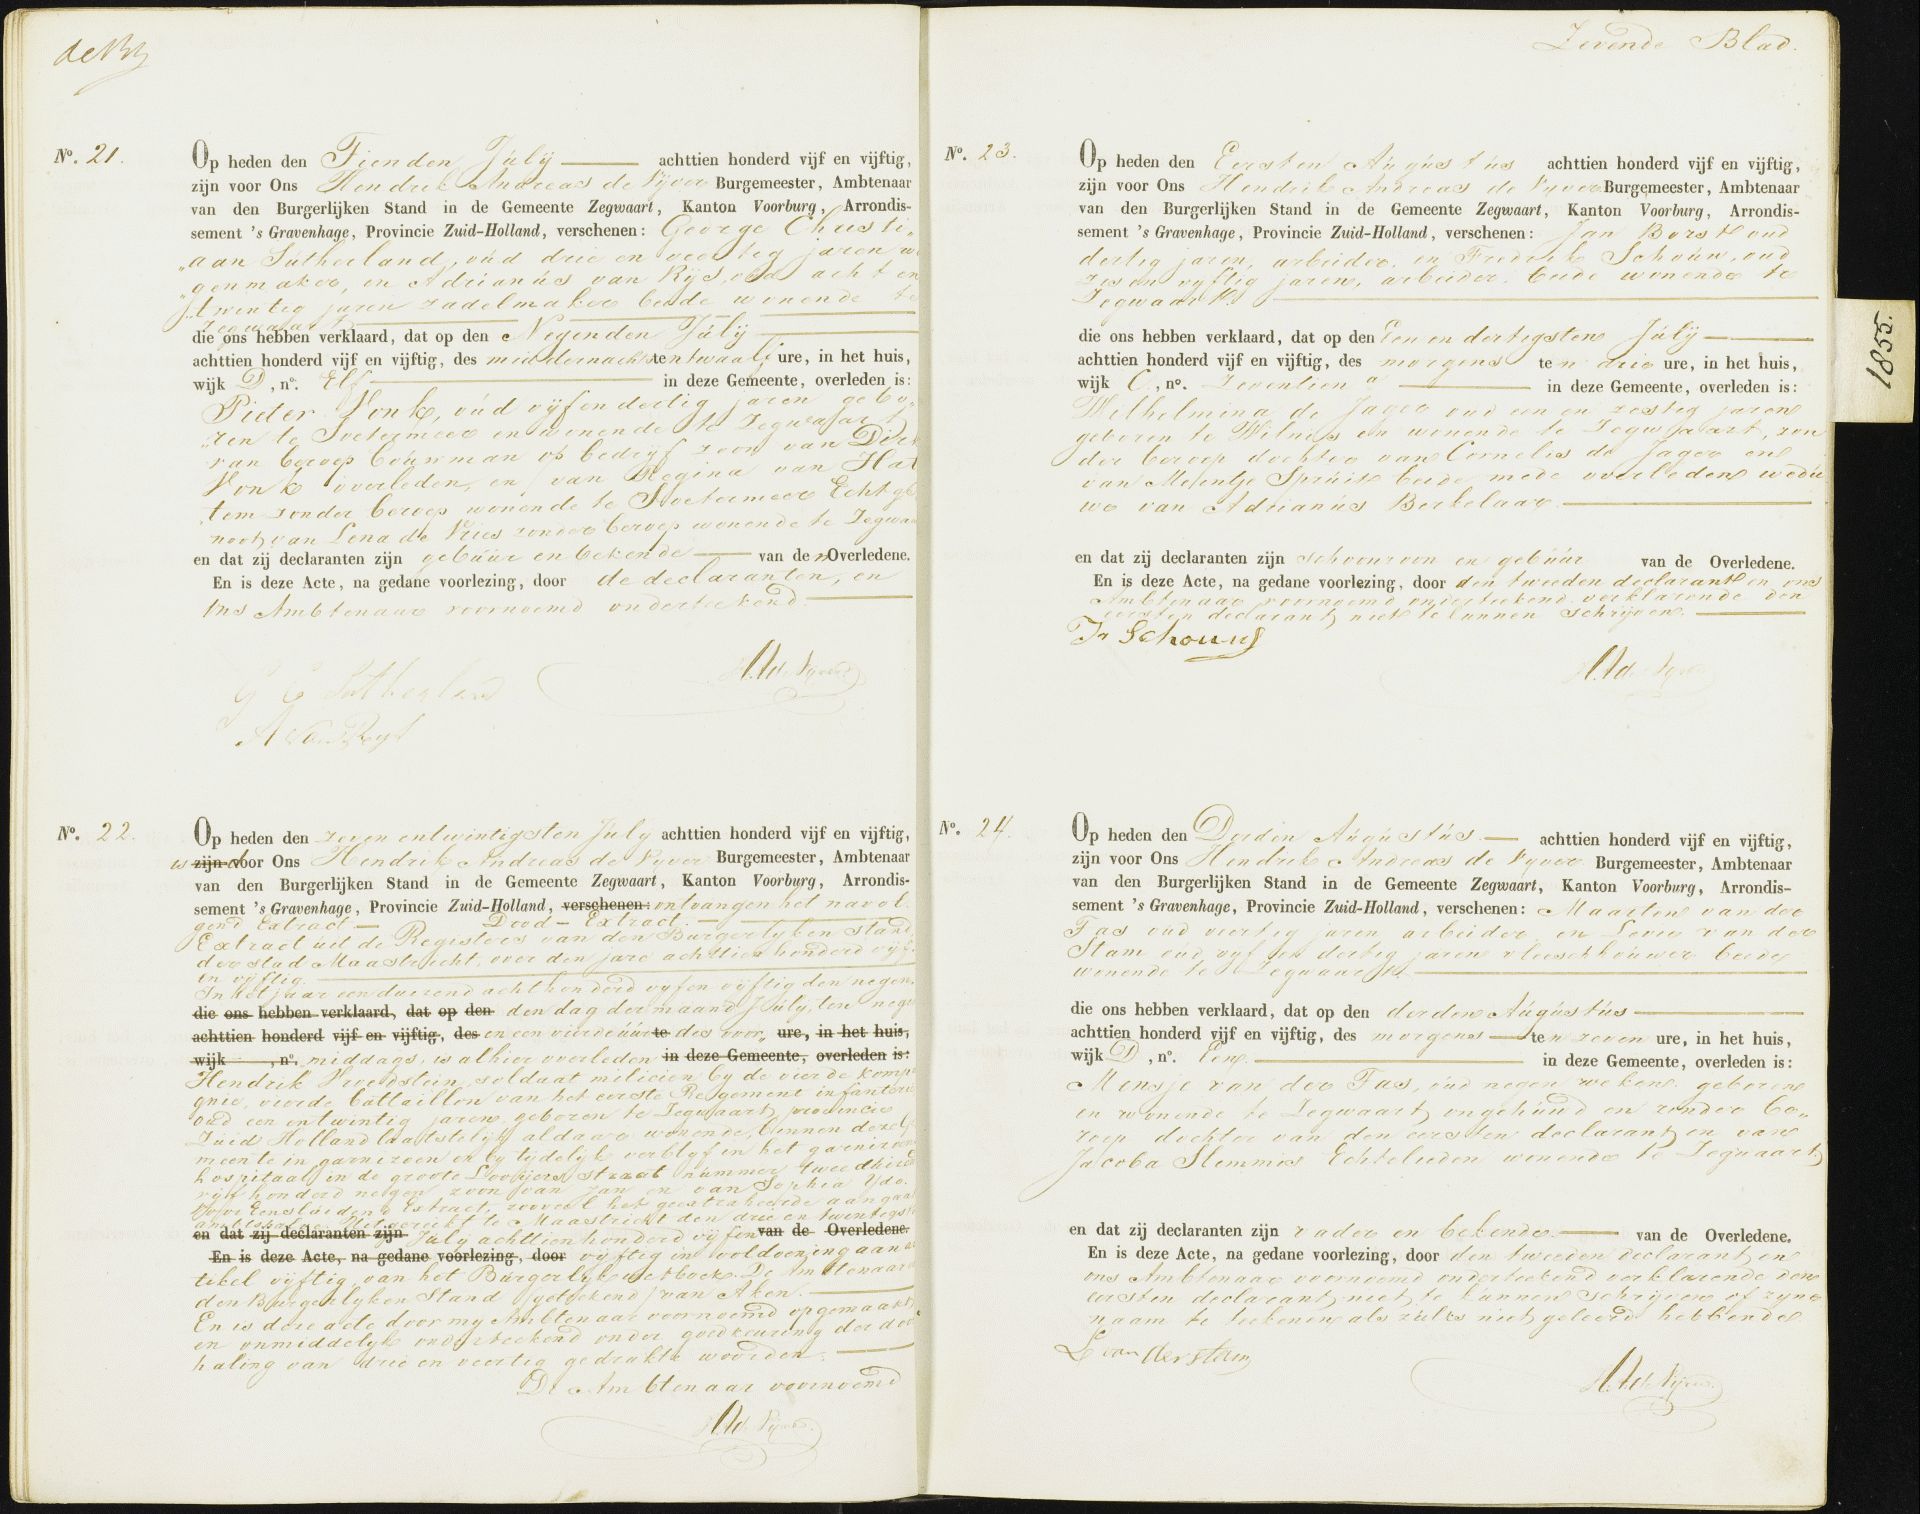 Nº. 21.
Op heden den Tienden Julÿ achttien honderd vijf en vijftig,
zijn voor Ons Hendrik Andreas de Vÿver Burgemeester, Ambtenaar
van den Burgerlijken Stand in de Gemeente Zegwaart, Kanton Voorburg, Arrondis-
sement 's Gravenhage, Provincie Zuid-Holland, verschenen: George Christi„
„aan Sutherland, oud drie en veertig jaren wa
„genmaker, en Adrianus van Rÿs, oud acht en
twintig jaren zadelmaker beide wonende te
Zegwaart
die ons hebben verklaard, dat op den Negenden Julÿ
achttien honderd vijf en vijftig, des middernachts ten twaalf ure, in het huis,
wijk D, nº. Elf in deze Gemeente, overleden is:
Pieter Vonk, oud vÿfendertig jaren gebo„
„ren te Soetermeer en wonende te Zegwaart
van beroep bouwman op bedrÿf zoon van Dirk
Vonk overleden, en van Regina van Hat
tem zonder beroep wonende te Soetermeer Echtge
noot van Lena de Vries zonder beroep wonende te Zegwaa
en dat zij declaranten zijn gebuur en bekende van den Overledene.
En is deze Acte, na gedane voorlezing, door de declaranten, en
Ons Ambtenaar voornoemd onderteekend.
G C Sutherland
A van Rys
Nº. 22.
Op heden den zeven entwintigsten July achttien honderd vijf en vijftig,
is zijn voor Ons Hendrik Andreas de Vyver Burgemeester, Ambtenaar
van den Burgerlijken Stand in de Gemeente Zegwaart, Kanton Voorburg, Arrondis-
sement 's Gravenhage, Provincie Zuid-Holland, verschenen: ontvangen het navol
gend Extract Dood-Extract.
Extract uit de Registers van den Burgerlyken stand
der stad Maastricht, over den jare achttien honderd vÿf
en vÿftig.
In het jaar een duizend acht honderd vyf en vÿftig den negen
die ons hebben verklaard, dat op den den dag der maand July, ten neg
achttien honderd vijf en vijftig, des en een vierde uur te des voor„ ure, in het huis,
wijk , nº. middags, is alhier overleden in deze Gemeente, overleden is:
Hendrik Vroedstein, soldaat milicien by de vierde komp
gnie, vierde battaillon van het eerste Regement infanterie
oud een entwintig jaren, geboren te Zegwaart, provincie
Zuid Holland laatstelÿk aldaar wonende, binnen dezelf
meente in garnizoen en by tÿdelÿk verblyf in het garnizoens
hospitaal in de groote Looijers straat nummer twee duizend
vÿf honderd negen, zoon van Jan en van Sophia Ydo.
Voor Eensluidend Extract, zooveel het geextraheerde aangaat
Uitgereikt te Maastricht den drie en twintigst
en dat zij declaranten zijn July achttien honderd vÿf en van de Overledene.
En is deze Acte, na gedane voorlezing, door vÿftig in voldoening aan ar
tikel vÿftig van het Burgerlÿk wetboek. De Ambtenaar
den Burgerlyken Stand (geteekend) van Aken.
En is deze acte door my Ambtenaar voornoemd opgemaakt,
en onmiddelyk onderteekend onder goedkeuring der door
haling van drie en veertig gedrukte woorden.
De Ambtenaar voornoemd
Zevende Blad.
Nº. 23.
Op heden den Eersten Augustus achttien honderd vijf en vijftig,
zijn voor Ons Hendrik Andreas de Vyver Burgemeester, Ambtenaar
van den Burgerlijken Stand in de Gemeente Zegwaart, Kanton Voorburg, Arrondis-
sement 's Gravenhage, Provincie Zuid-Holland, verschenen: Jan Borst oud
dertig jaren, arbeider en Fredrik Schouw, oud
zes en vyftig jaren, arbeider, beide wonende te
Zegwaart
die ons hebben verklaard, dat op den Een en dertigsten Julÿ
achttien honderd vijf en vijftig, des morgens ten drie ure, in het huis,
wijk C, nº. Zeventien a in deze Gemeente, overleden is:
Wilhelmina de Jager oud een en zestig jaren
geboren te Wilnis en wonende te Zegwaart, zon
der beroep dochter van Cornelis de Jager en
van Meentje Spruit beide mede overleden wedu
we van Adrianus Berkelaar.
en dat zij declaranten zijn schoonzoon en gebuur van de Overledene.
En is deze Acte, na gedane voorlezing, door den tweeden declarant en ons
Ambtenaar voornoemd onderteekend verklarende den
eersten declarant niet te kunnen schrijven.
Fr Schouw
Nº. 24.
Op heden den Derden Augustus achttien honderd vijf en vijftig,
zijn voor Ons Hendrik Andreas de Vyver Burgemeester, Ambtenaar
van den Burgerlijken Stand in de Gemeente Zegwaart, Kanton Voorburg, Arrondis-
sement 's Gravenhage, Provincie Zuid-Holland, verschenen: Maarten van der
Tas oud veertig jaren, arbeider, en Leven van der
Stam oud vyf en dertig jaren vleeschhouwer beide
wonende te Zegwaart
die ons hebben verklaard, dat op den derden Augustus
achttien honderd vijf en vijftig, des morgens ten zeven ure, in het huis,
wijk D, nº. Een in deze Gemeente, overleden is:
Mensje van der Tas, oud negen weken, geboren
en wonende te Zegwaart, ongehuwd en zonder be„
roep dochter van den eersten declarant en van
Jacoba Stemmis Echtelieden wonende te Zegwaart
en dat zij declaranten zijn vader en bekende van de Overledene.
En is deze Acte, na gedane voorlezing, door den tweeden declarant, en
ons Ambtenaar voornoemd onderteekend verklarende den
eersten declarant niet te kunnen schrijven of zyne
naam te teekenen als zulks niet geleerd hebbende
L van der Stam
1855.